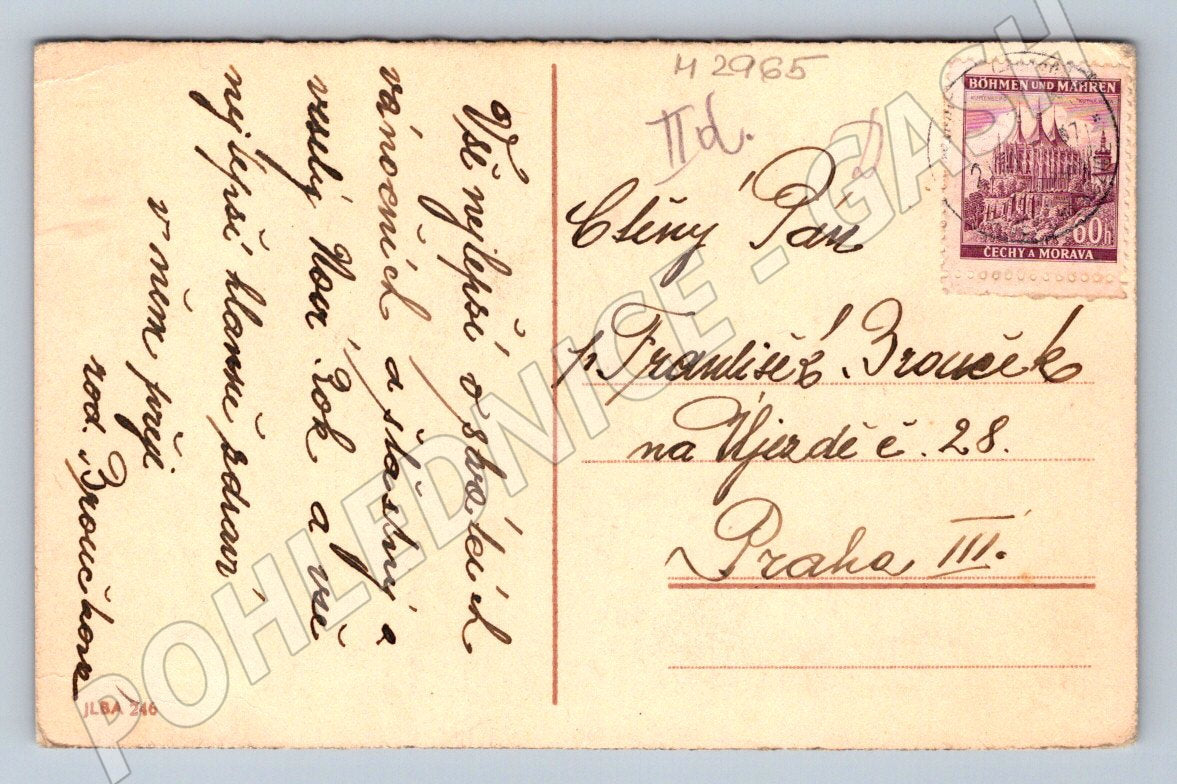 Vše nejlepší o svátcích
vánočních a šťastný a
veselý Nový Rok a vše
nejlepší hlavně zdraví
v něm přeji
rod. Broučkova
JLBA 246
H 2965
II d.
BÖHMEN UND MÄHREN
60h
ČECHY A MORAVA
Ctěný Pan
p. František Brouček
na Újezdě č. 28.
Praha III.
POHLEDNICE - GASH